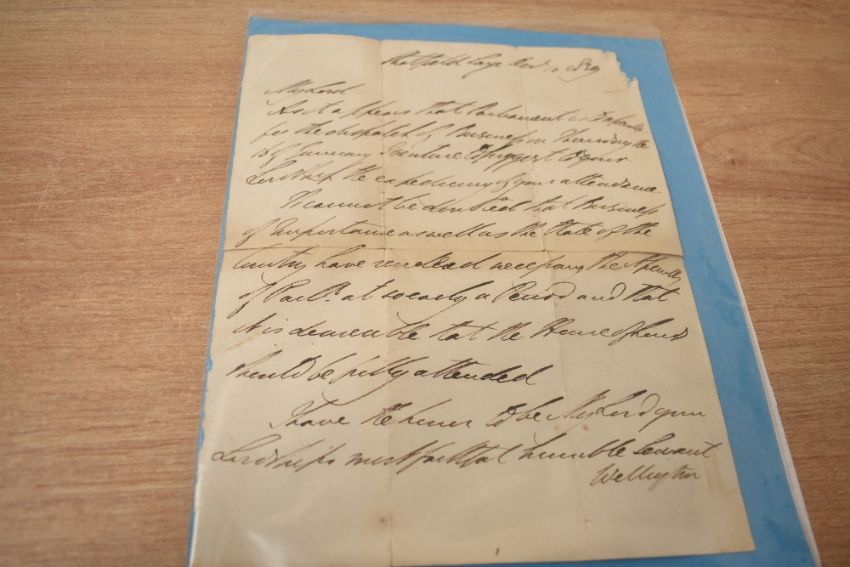 Strathfield Saye Nov. 1839
My Lord
As it appears that Parliament is to
for the dispatch of Business on Thursday the
16 of January I venture to suggest to your
Lordship the expediency of your attendance
It cannot be doubted that Business
of Importance as well as the State of the
Country have rendered necessary the Assembly
of Parlt. at so early a Period and that
it is desireable that the House of Lords
should be fully attended
I have the honor to be My Lord your
Lordships most faithful humble Servant
Wellington